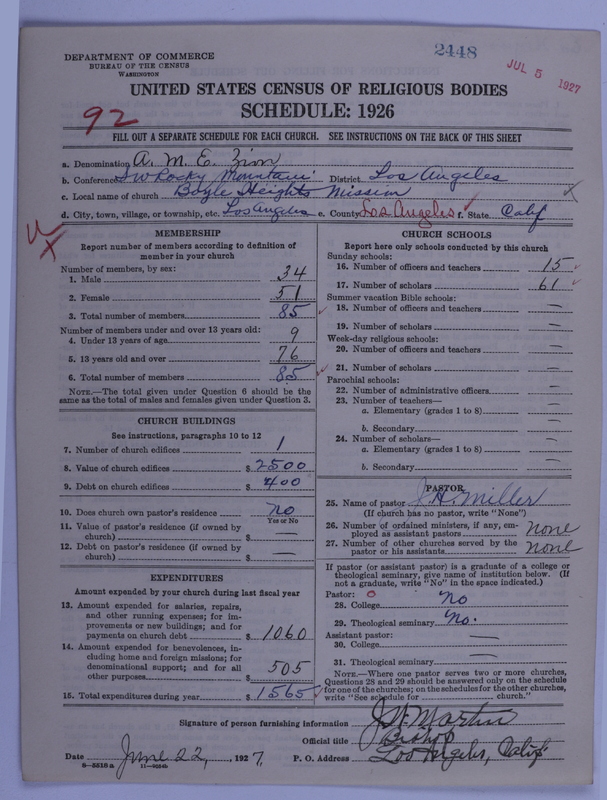 2448
JUL 5 1927
DEPARTMENT OF COMMERCE
BUREAU OF THE CENSUS
WASHINGTON
UNITED STATES CENSUS OF RELIGIOUS BODIES
SCHEDULE: 1926
92
FILL OUT A SEPARATE SCHEDULE FOR EACH CHURCH. SEE INSTRUCTIONS ON THE BACK OF THIS SHEET
a. Denomination A. M. E. Zion
b. Conference SW Rocky Mountain District Los Angeles
c. Local name of church Boyle Heights Mission
d. City, town, village, or township, etc. Los Angeles e. County Los Angeles f. State Calif
MEMBERSHIP
Report number of members according to definition of member in your church
Number of members, by sex:
1. Male 34
2. Female 51
3. Total number of members 85
Number of members under and over 13 years old:
4. Under 13 years of age 9
5. 13 years old and over 76
6. Total number of members 85
NOTE.—The total given under Question 6 should be the
same as the total of males and females given under Question 3.
CHURCH BUILDINGS
See instructions, paragraphs 10 to 12
7. Number of church edifices 1
8. Value of church edifices $ 2500
9. Debt on church edifices $ 400
10. Does church own pastor's residence no
Yes or No
11. Value of pastor's residence (if owned by
church) $ —
12. Debt on pastor's residence (if owned by
church) $ —
EXPENDITURES
Amount expended by your church during last fiscal year
13. Amount expended for salaries, repairs,
and other running expenses; for im-
provements or new buildings; and for
payments on church debt $ 1060
14. Amount expended for benevolences, in-
cluding home and foreign missions; for
denominational support; and for all
other purposes $ 505
15. Total expenditures during year $ 1565
CHURCH SCHOOLS
Report here only schools conducted by this church
Sunday schools:
16. Number of officers and teachers 15
17. Number of scholars 61
Summer vacation Bible schools:
18. Number of officers and teachers —
19. Number of scholars —
Week-day religious schools:
20. Number of officers and teachers —
21. Number of scholars —
Parochial schools:
22. Number of administrative officers —
23. Number of teachers—
a. Elementary (grades 1 to 8) —
b. Secondary —
24. Number of scholars—
a. Elementary (grades 1 to 8) —
b. Secondary —
PASTOR
25. Name of pastor J. H. Miller
(If church has no pastor, write "None")
26. Number of ordained ministers, if any, em-
ployed as assistant pastors none
27. Number of other churches served by the
pastor or his assistants none
If pastor (or assistant pastor) is a graduate of a college or
theological seminary, give name of institution below. (If
not a graduate, write "No" in the space indicated.)
Pastor: 0
28. College no
29. Theological seminary no.
Assistant pastor:
30. College —
31. Theological seminary —
NOTE.—Where one pastor serves two or more churches,
Questions 28 and 29 should be answered only on the schedule
for one of the churches; on the schedules for the other churches,
write "See schedule for church."
Signature of person furnishing information J W Martin
Official title Bishop
Date June 22, 1927. P. O. Address Los Angeles, Calif